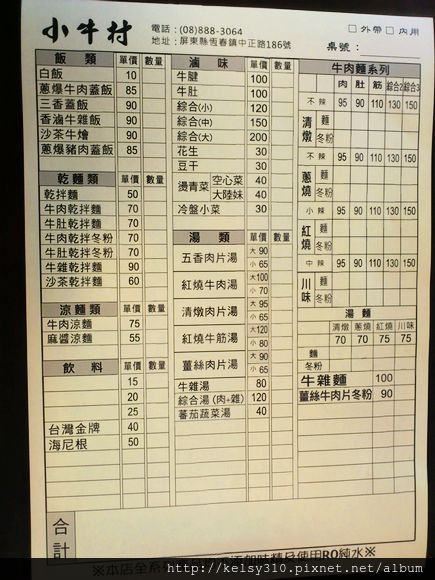 小牛村
電話：(08)888-3064
地址：屏東縣恆春鎮中正路186號
□外帶 □內用
桌號：
飯類 單價 數量
白飯 10
蔥爆牛肉蓋飯 85
三香蓋飯 90
香滷牛雜飯 90
沙茶牛燴 90
蔥爆豬肉蓋飯 85
乾麵類 單價 數量
乾拌麵 50
牛肉乾拌麵 70
牛肚乾拌麵 70
牛肉乾拌冬粉 70
牛肚乾拌冬粉 70
牛雜乾拌麵 90
沙茶乾拌麵 60
涼麵類 單價 數量
牛肉涼麵 75
麻醬涼麵 55
飲料 單價 數量
15
20
25
台灣金牌 40
海尼根 50
合計
滷味 單價 數量
牛腱 100
牛肚 100
綜合(小) 120
綜合(中) 150
綜合(大) 200
花生 30
豆干 30
燙青菜 空心菜 40
大陸妹 40
冷盤小菜 30
湯類 單價 數量
五香肉片湯 大 90
小 65
紅燒牛肉湯 大 100
小 70
清燉肉片湯 大 95
小 65
紅燒牛筋湯 大 120
小 80
薑絲肉片湯 大 90
小 65
牛雜湯 80
綜合湯 (肉+雜) 120
蕃茄蔬菜湯 40
牛肉麵系列
肉 肚 筋 綜合2 綜合3
不辣 95 90 110 130 150
清燉 麵
冬粉
不辣 95 90 110 130 150
蔥燒 麵
冬粉
小辣 95 90 110 130 150
紅燒 麵
冬粉
中辣 95 90 110 130 150
川味 麵
冬粉
湯麵
清燉 蔥燒 紅燒 川味
70 70 75 75
麵
冬粉
牛雜麵 100
薑絲牛肉片冬粉 90
使用RO純水※
http://kelsy310.pixnet.net/album